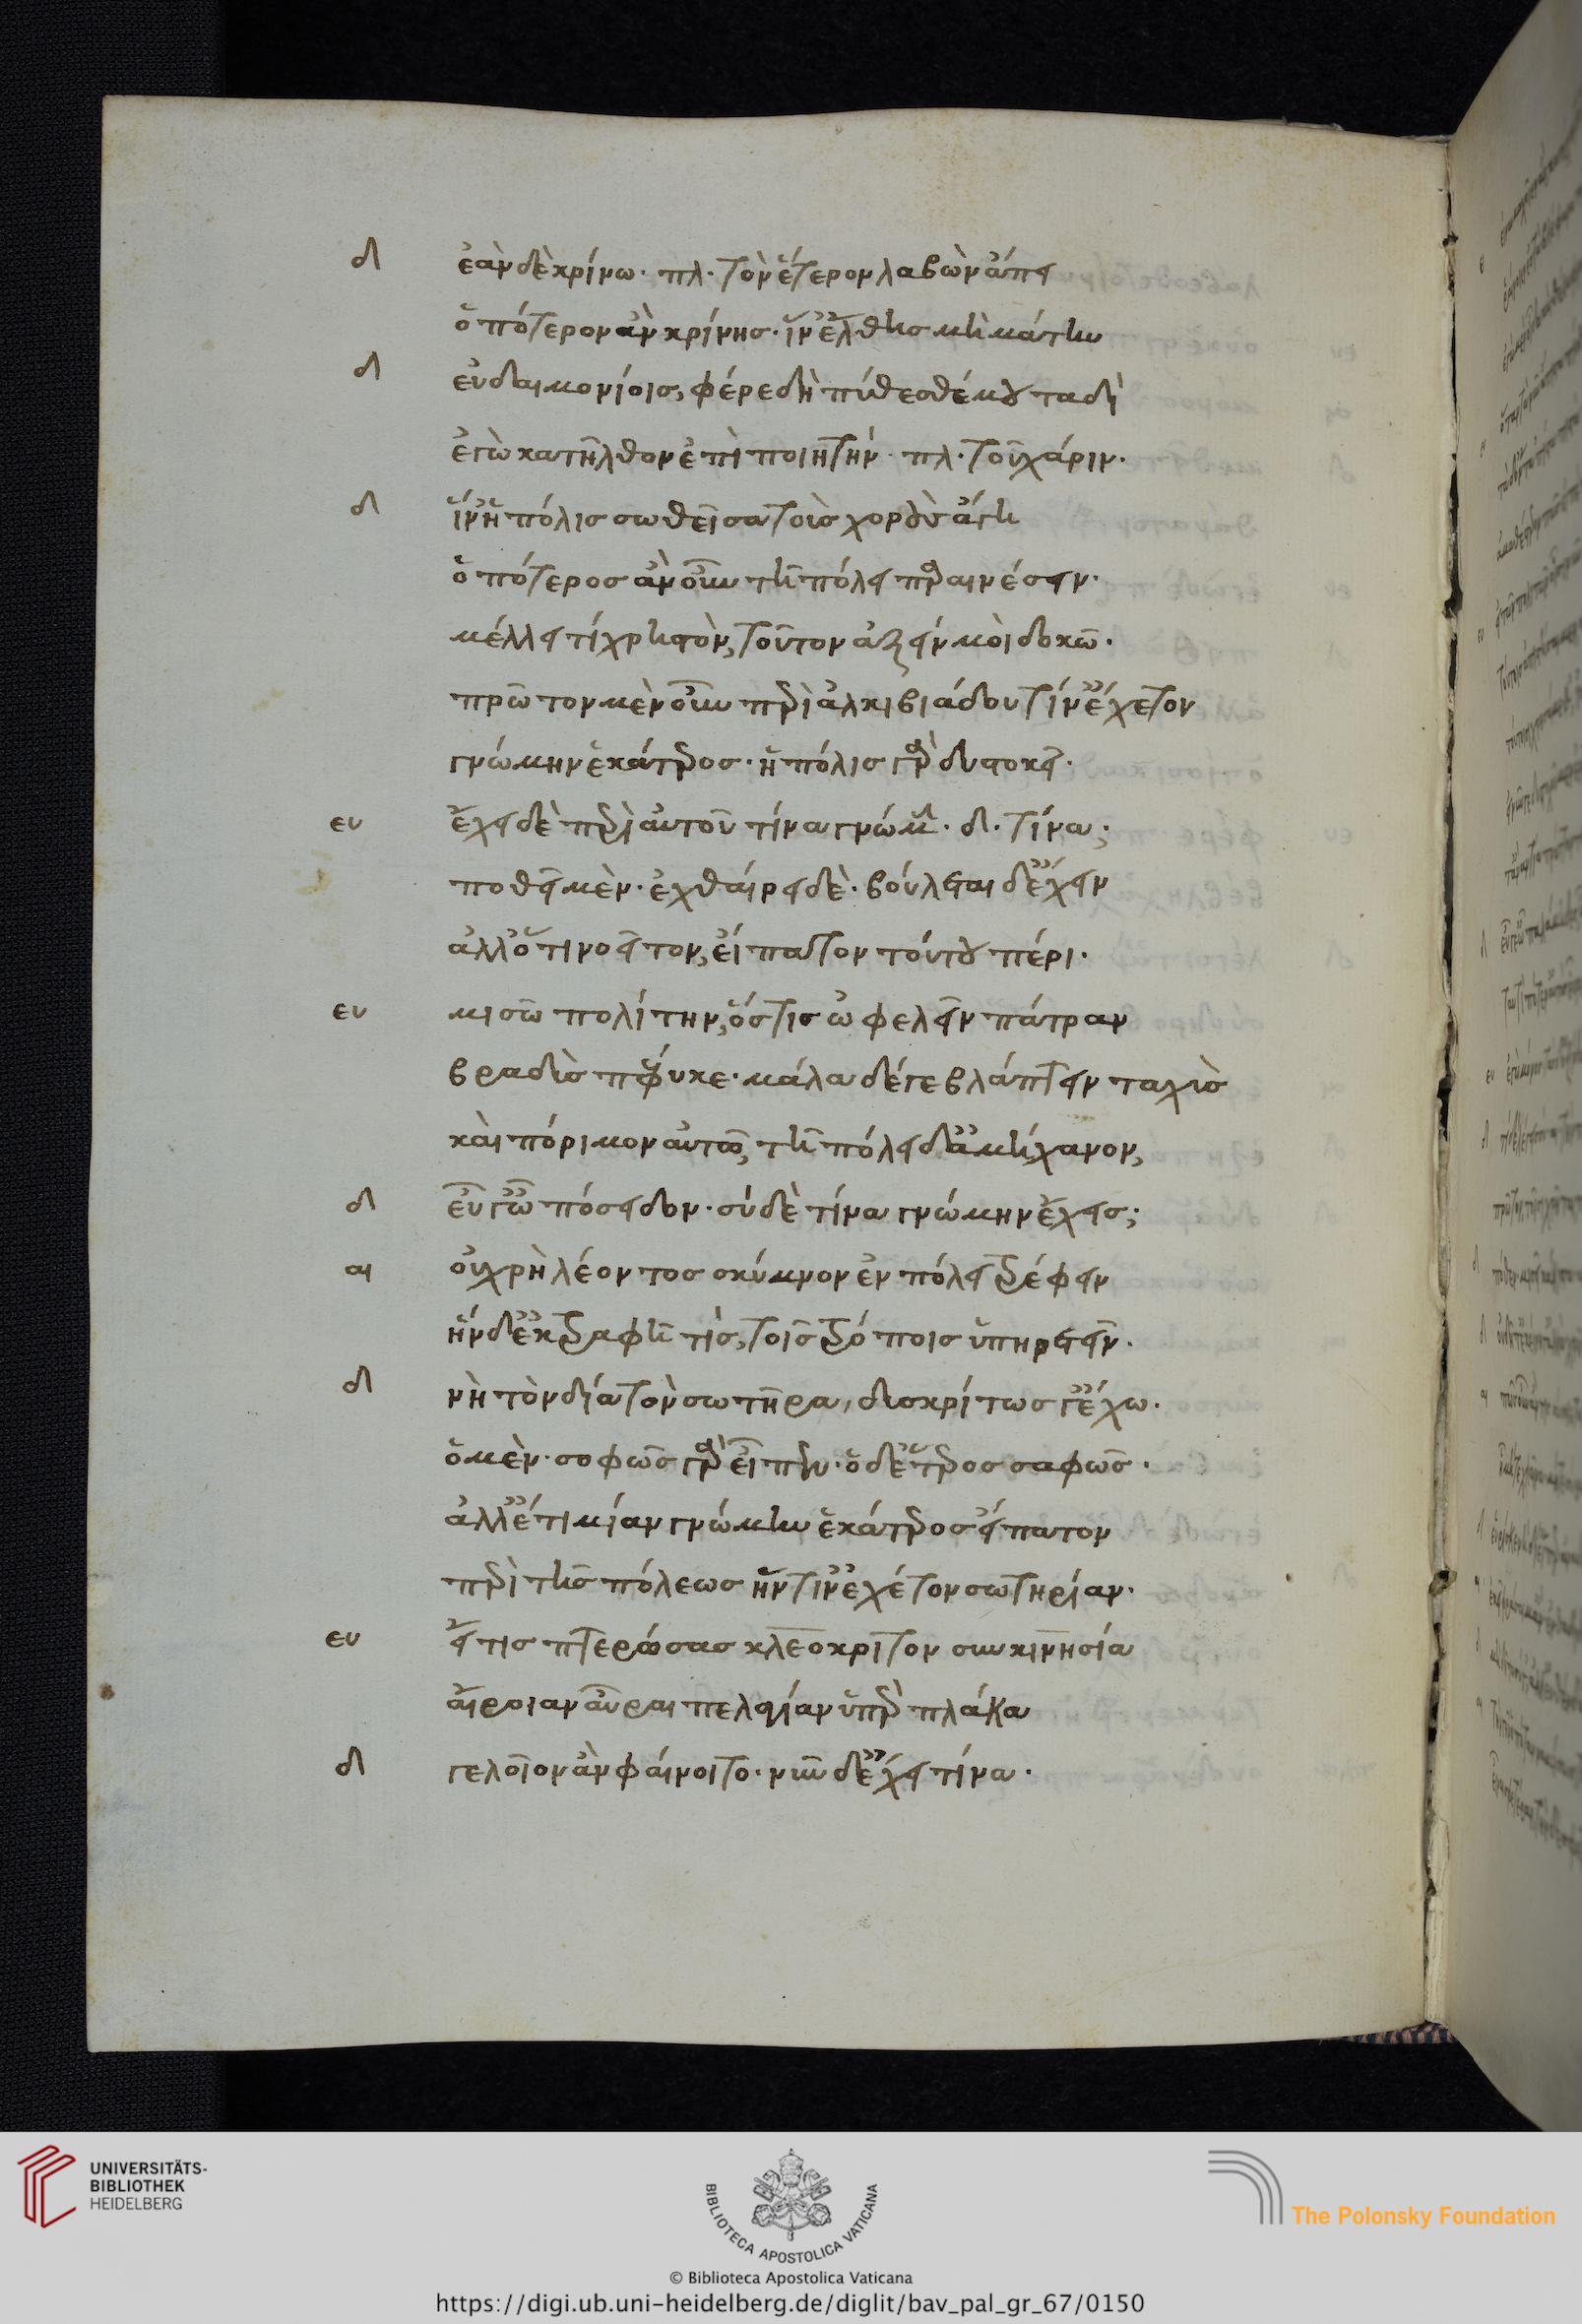 δι ἐὰν δὲ κρίνω· πλ· τὸν ἕτερον λαβὼν ἄπει
ὁπότερον ἂν κρίνης· ἵν' ἔλθης μὴ μάτην
δι εὐδαιμονίοις, φέρε δὴ πύθεσθέ μου ταδὶ
ἐγὼ κατῆλθον ἐπὶ ποιητήν· πλ· τοῦ χάριν·
δι ἵν' ἡ πόλις σωθεῖσα τοὺς χοροὺς ἄγη
ὁπότερος ἂν οὖν τῆ πόλει παραινέσειν·
μέλλει τί χρηστὸν, τοῦτον ἄξειν μοὶ δοκῶ·
πρῶτον μὲν οὖν περὶ ἀλκιβιάδου τίν' ἔχετον
γνώμην ἑκάτερος· ἡ πόλις γὰρ δυστοκεῖ·
ευ ἔχει δὲ περὶ αὐτοῦ τίνα γνώμην· δι· τίνα;
ποθεῖ μὲν· ἐχθαίρει δὲ· βούλεται δ' ἔχειν
ἀλλ' ὅτι νοεῖτον, εἴπατον τούτου πέρι·
ευ μισῶ πολίτην, ὅστις ὠφελεῖν πάτραν
βραδὺς πέφυκε· μάλα δέ γε βλάπτειν ταχὺς
καὶ πόριμον αὑτῶ, τῆ πόλει δ' ἀμήχανον,
δι εὖ γ' ὦ πόσειδον· σὺ δὲ τίνα γνώμην ἔχεις;
αι οὐ χρὴ λέοντος σκύμνον ἐν πόλει τρέφειν
ἢν δ' ἐκτραφῆ τίς, τοῖς τρόποις ὑπηρετεῖν·
δι νὴ τὸν δία τὸν σωτῆρα, δυσκρίτως γ' ἔχω·
ὁ μὲν· σοφῶς γὰρ εἶπεν· ὁ δ' ἕτερος σαφῶς·
ἀλλ' ἔτι μίαν γνώμην ἑκάτερος εἴπατον
περὶ τῆς πόλεως ἥντιν' ἔχετον σωτηρίαν·
ευ εἴ τις πτερώσας κλεόκριτον κινησία
αἴροιαν αὖραι πελαγίαν ὑπὲρ πλάκα
δι γελοῖον ἂν φαίνοιτο· νοῦν δ' ἔχει τίνα·
UNIVERSITÄTS-
BIBLIOTHEK
HEIDELBERG
BIBLIOTECA APOSTOLICA VATICANA
The Polonsky Foundation
© Biblioteca Apostolica Vaticana
https://digi.ub.uni-heidelberg.de/diglit/bav_pal_gr_67/0150